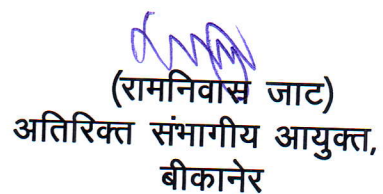 (रामनिवास जाट)
अतिरिक्त संभागीय आयुक्त,
बीकानेर